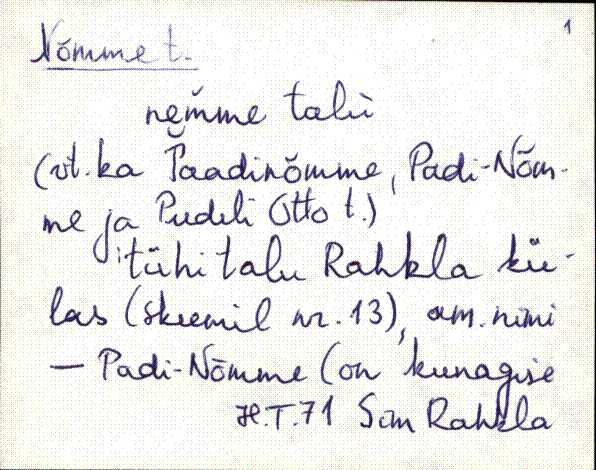 1
Nõmme t.
nem̆me talù
(vt. ka Paadinõmme, Padi-Nõm-
me ja Pudeli Otto t.)
tühi talu Rahkla kü-
las (skeemil nr. 13), am. nimi
— Padi-Nõmme (on kunagise
H.T.71 Sim Rahkla